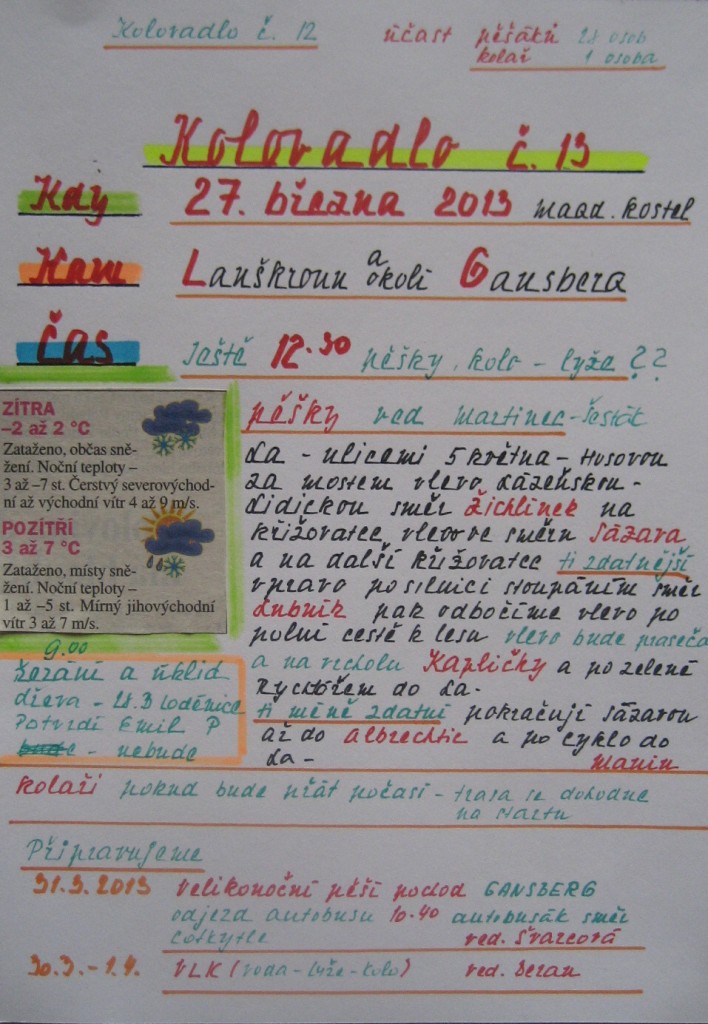 Kolovadlo č. 12
účast pěšáků 28 osob
kolař 1 osoba
Kolovadlo č. 13
Kdy 27. března 2013 maad. kostel
Kam Lanškroun a okolí Gansberg
Čas Ještě 12.30 pěšky, kolo - lyže ??
ZÍTRA
–2 až 2 °C
Zataženo, občas sně-
žení. Noční teploty –
3 až –7 st. Čerstvý severovýchod-
ní až východní vítr 4 až 9 m/s.
POZÍTŘÍ
3 až 7 °C
Zataženo, místy sně-
žení. Noční teploty –
1 až –5 st. Mírný jihovýchodní
vítr 3 až 7 m/s.
pěšky ved Martinec-Šesták
La - ulicemi 5 května - Husovou
za mostem vlevo Lázeňskou -
Lidickou směr Žichlínek na
křižovatce vlevo ve směru Sázava
a na další křižovatce ti zdatnější
vpravo po silnici stoupáním směr
Lubník pak odbočíme vlevo po
polní cestě k lesu vlevo bude praseča
a na vrcholu Kapličky a po zelené
Rychtářem do La-
ti méně zdatní pokračují Sázavou
až do Albrechtic a po cyklo do
La- Manin
9.00
Řezání a úklid
dřeva - 28.3 loděnice
Potvrdí Emil P
bude - nebude
kolaři pokud bude přát počasí - trasa se dohodne
na startu
Připravujeme
31.3.2013 Velikonoční pěší pochod GANSBERG
odjezd autobusu 10.40 autobusák směr
Cotkytle ved. Švarcová
30.3.-1.4. VLK (voda-lyže-kolo) ved. Beran